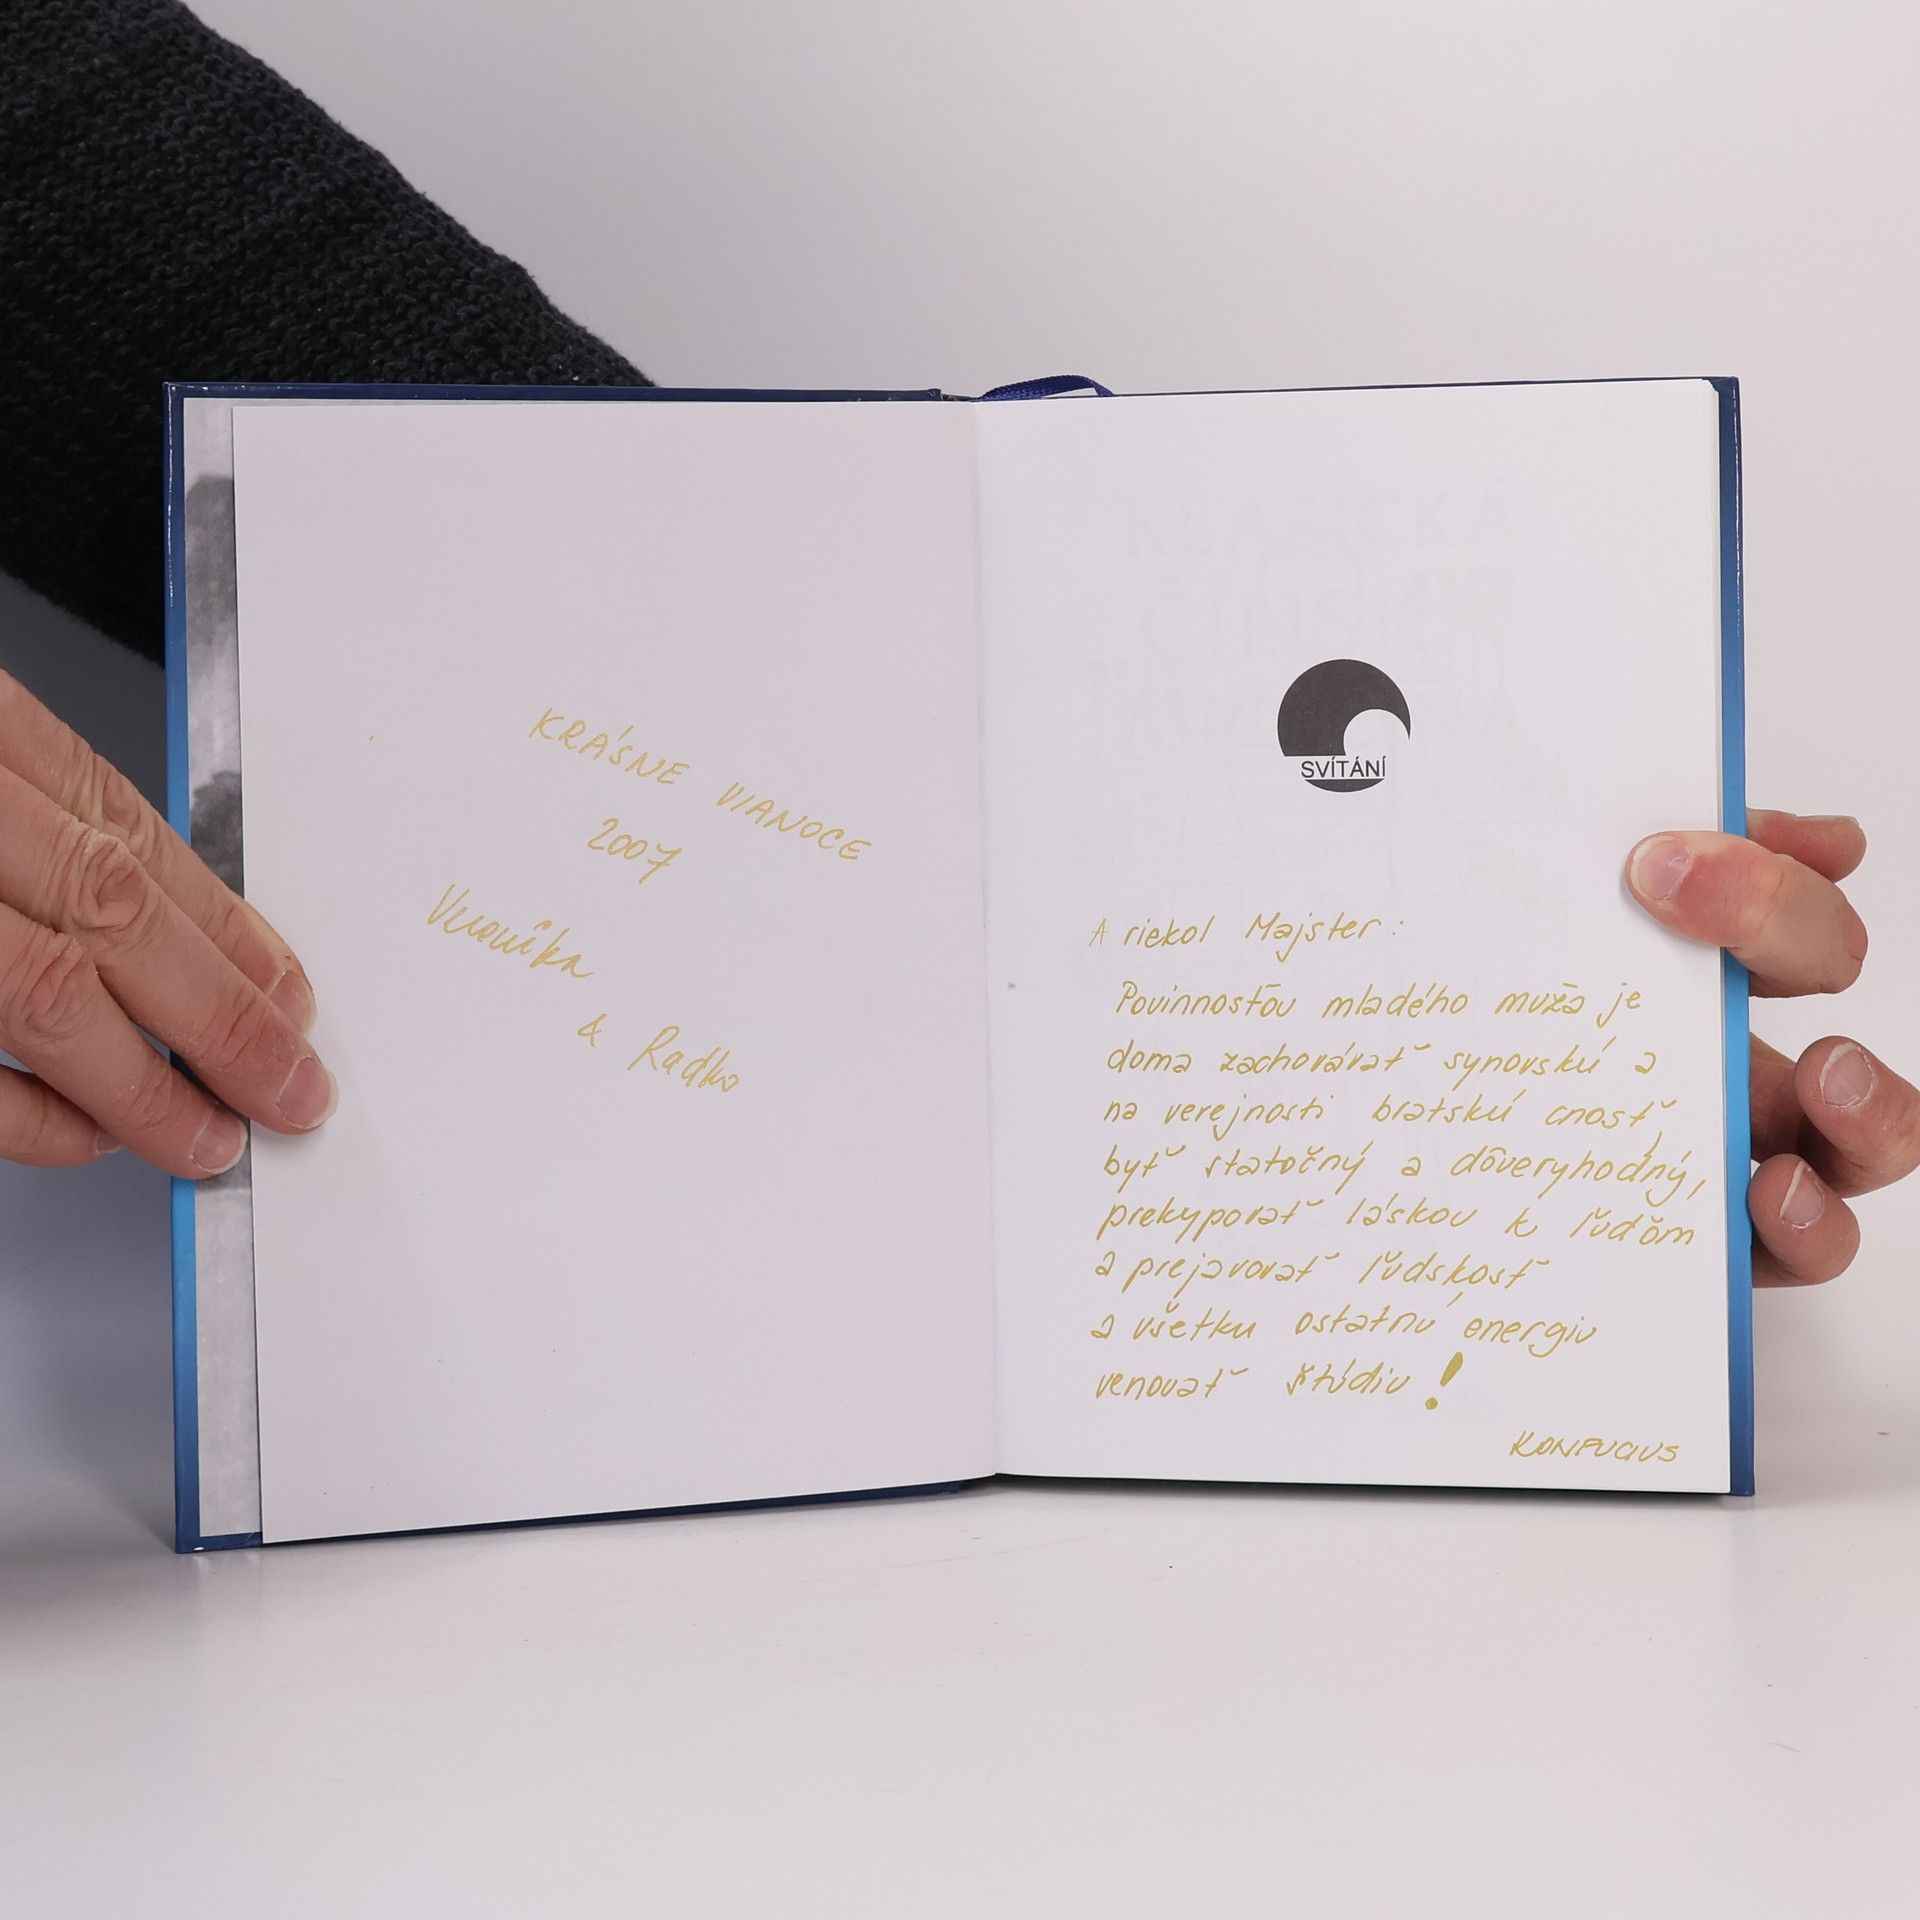 KRÁSNE VIANOCE
2007
Veronika
& Radko
SVÍTÁNÍ
A riekol Majster:
Povinnosťou mladého muža je
doma zachovávať synovskú a
na verejnosti bratskú cnosť,
byť statočný a dôveryhodný,
prekypovať láskou k ľuďom
a prejavovať ľudskosť
a všetku ostatnú energiu
venovať štúdiu!
KONFUCIUS